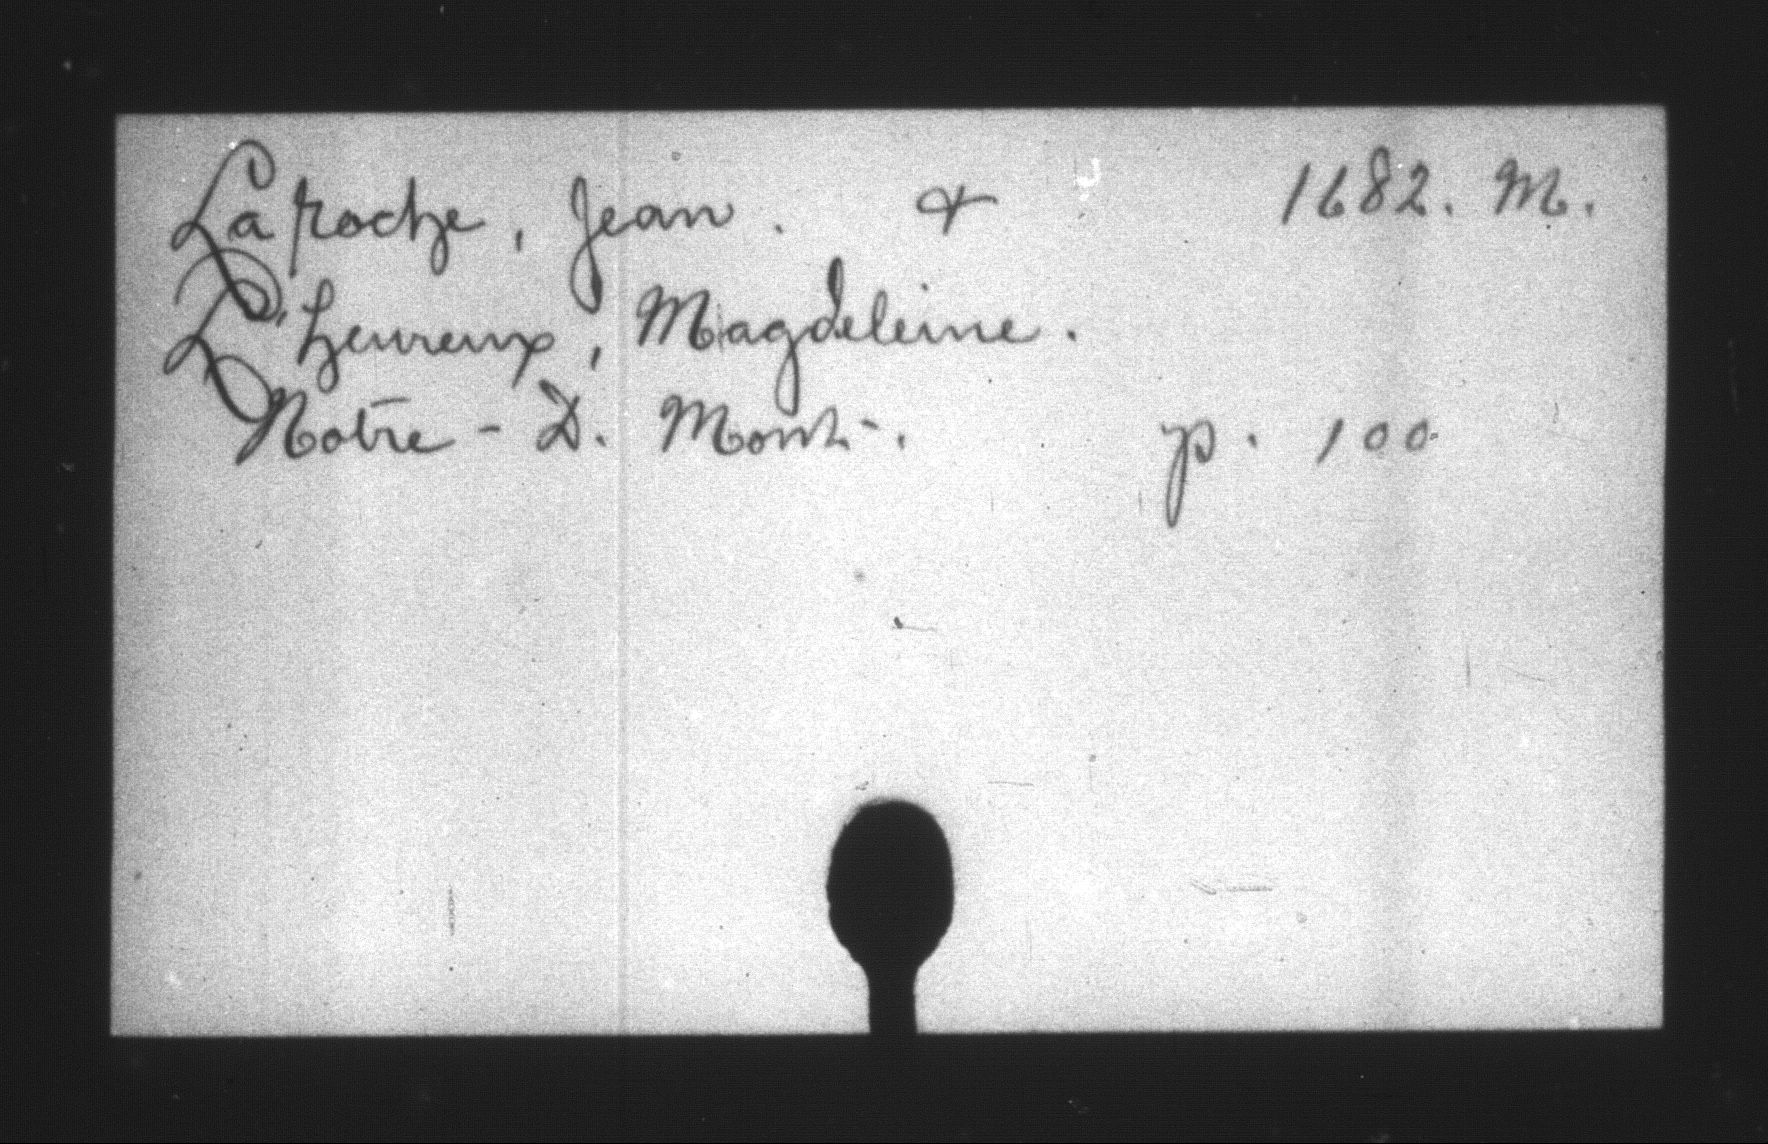 Laroche, Jean. & 1682. M.
L'heureux, Magdeleine.
Notre-D. Mont-. p. 100